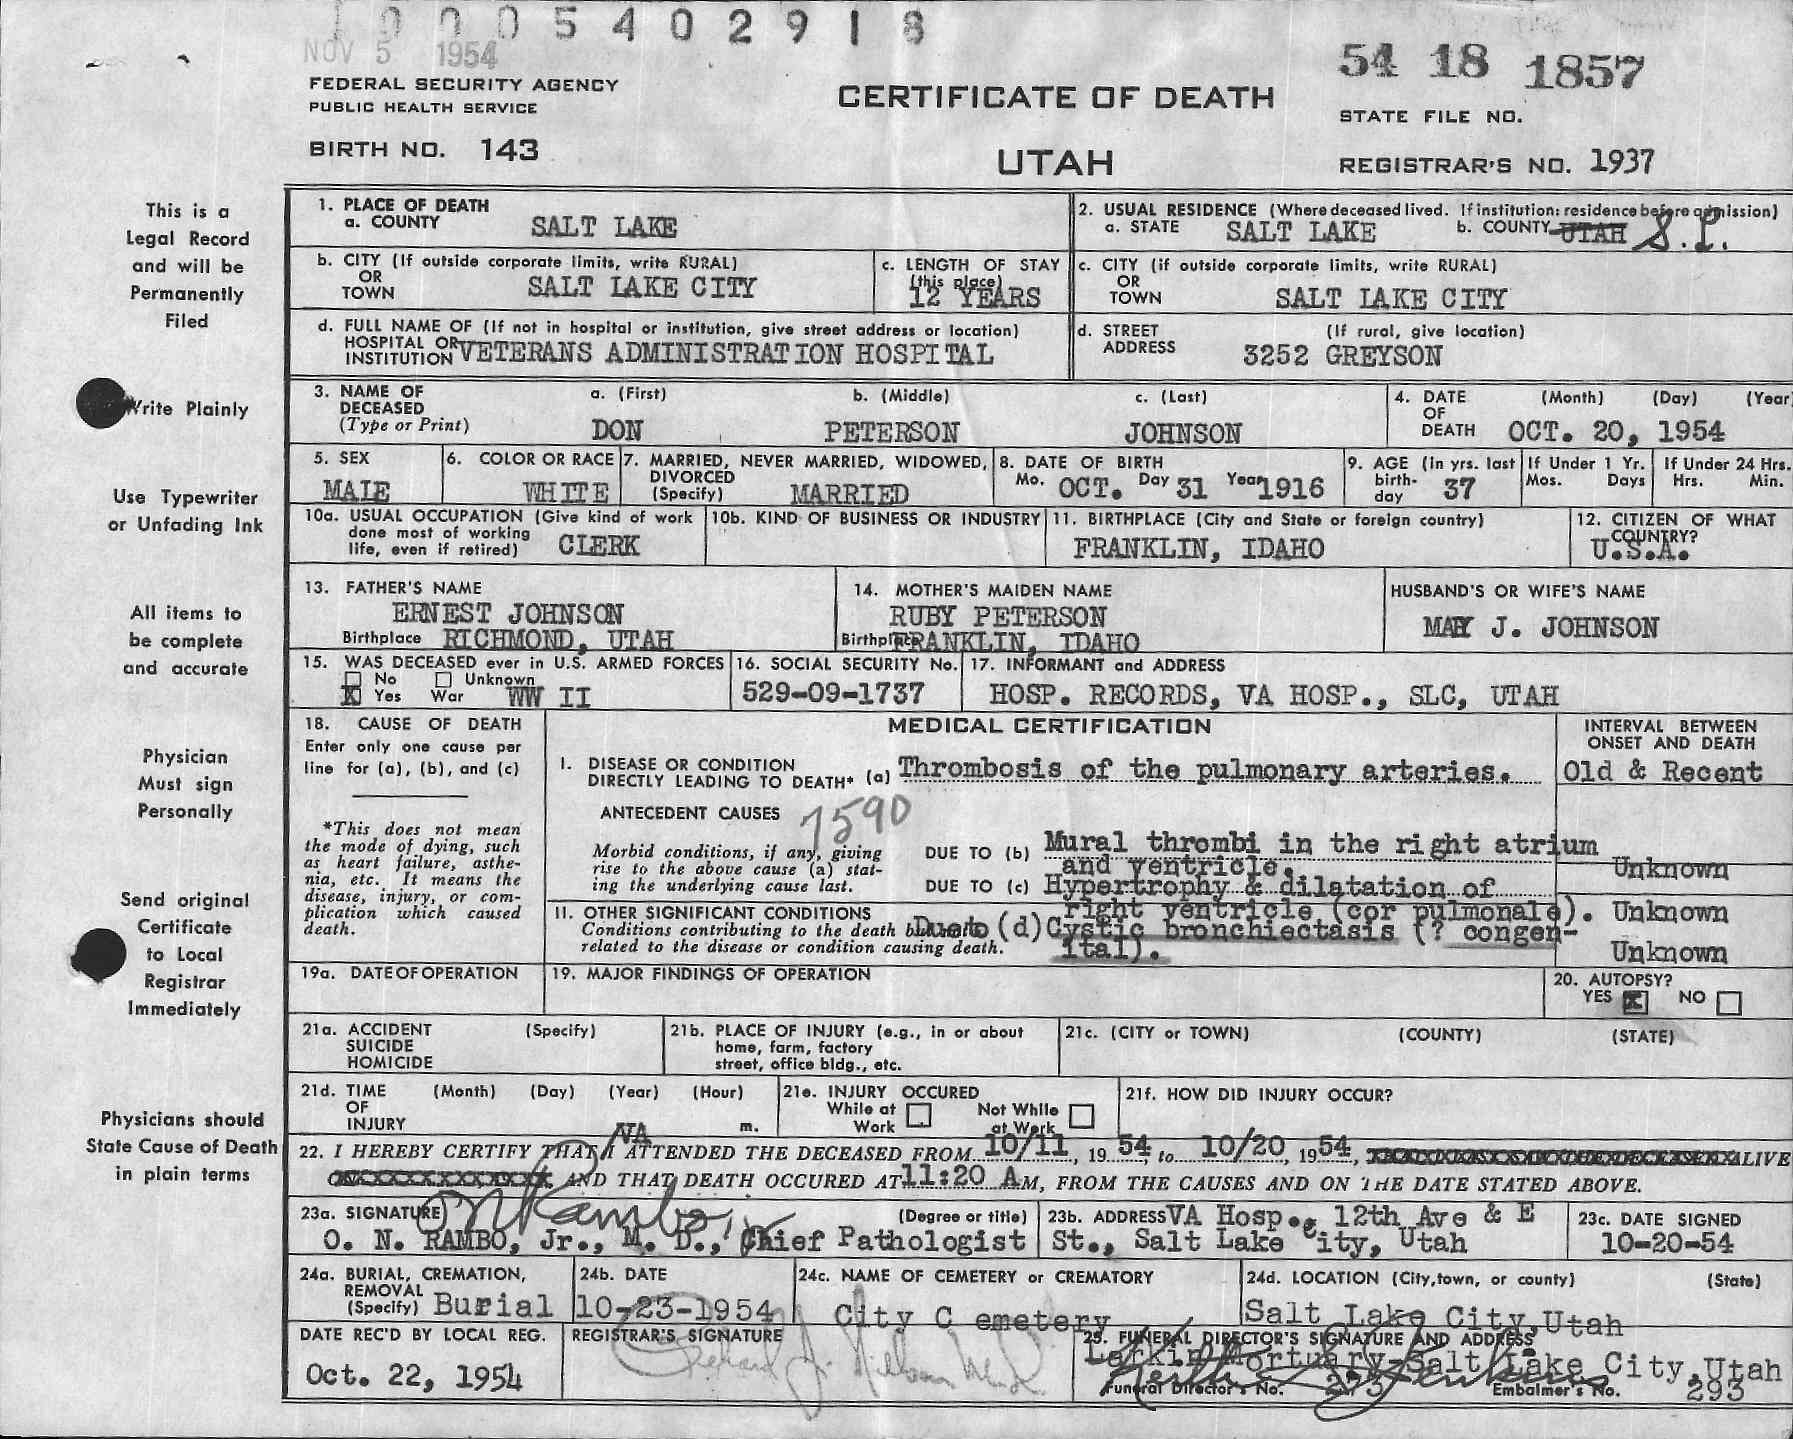 1 0 0 0 5 4 0 2 9 1 8
NOV 5 1954
54 18 1857
FEDERAL SECURITY AGENCY
PUBLIC HEALTH SERVICE
CERTIFICATE OF DEATH
STATE FILE NO.
BIRTH NO. 143
UTAH
REGISTRAR'S NO. 1937
This is a
Legal Record
and will be
Permanently
Filed
Write Plainly
Use Typewriter
or Unfading Ink
All items to
be complete
and accurate
Physician
Must sign
Personally
Send original
Certificate
to Local
Registrar
Immediately
Physicians should
State Cause of Death
in plain terms
1. PLACE OF DEATH
a. COUNTY SALT LAKE
2. USUAL RESIDENCE (Where deceased lived. If institution: residence before admission)
a. STATE SALT LAKE b. COUNTY UTAH S.L.
b. CITY (If outside corporate limits, write RURAL)
OR
TOWN SALT LAKE CITY
c. LENGTH OF STAY
(this place)
12 YEARS
c. CITY (if outside corporate limits, write RURAL)
OR
TOWN SALT LAKE CITY
d. FULL NAME OF (If not in hospital or institution, give street address or location)
HOSPITAL OR
INSTITUTION VETERANS ADMINISTRATION HOSPITAL
d. STREET (If rural, give location)
ADDRESS 3252 GREYSON
3. NAME OF a. (First) b. (Middle) c. (Last)
DECEASED
(Type or Print) DON PETERSON JOHNSON
4. DATE (Month) (Day) (Year
OF
DEATH OCT. 20, 1954
5. SEX
MALE
6. COLOR OR RACE
WHITE
7. MARRIED, NEVER MARRIED, WIDOWED,
DIVORCED
(Specify) MARRIED
8. DATE OF BIRTH
Mo. OCT. Day 31 Year 1916
9. AGE (In yrs. last
birth-
day 37
If Under 1 Yr.
Mos. Days
If Under 24 Hrs.
Hrs. Min.
10a. USUAL OCCUPATION (Give kind of work
done most of working
life, even if retired) CLERK
10b. KIND OF BUSINESS OR INDUSTRY
11. BIRTHPLACE (City and State or foreign country)
FRANKLIN, IDAHO
12. CITIZEN OF WHAT
COUNTRY?
U.S.A.
13. FATHER'S NAME
ERNEST JOHNSON
Birthplace RICHMOND, UTAH
14. MOTHER'S MAIDEN NAME
RUBY PETERSON
Birthplace FRANKLIN, IDAHO
HUSBAND'S OR WIFE'S NAME
MAY J. JOHNSON
15. WAS DECEASED ever in U.S. ARMED FORCES
No Unknown
X Yes War WW II
16. SOCIAL SECURITY No.
529-09-1737
17. INFORMANT and ADDRESS
HOSP. RECORDS, VA HOSP., SLC, UTAH
18. CAUSE OF DEATH
Enter only one cause per
line for (a), (b), and (c)
*This does not mean
the mode of dying, such
as heart failure, asthe-
nia, etc. It means the
disease, injury, or com-
plication which caused
death.
MEDICAL CERTIFICATION
INTERVAL BETWEEN
ONSET AND DEATH
I. DISEASE OR CONDITION
DIRECTLY LEADING TO DEATH* (a) Thrombosis of the pulmonary arteries. Old & Recent
ANTECEDENT CAUSES 7590
Morbid conditions, if any, giving
rise to the above cause (a) stat-
ing the underlying cause last.
DUE TO (b) Mural thrombi in the right atrium
and ventricle. Unknown
DUE TO (c) Hypertrophy & dilatation of
right ventricle (cor pulmonale). Unknown
II. OTHER SIGNIFICANT CONDITIONS
Conditions contributing to the death but not
related to the disease or condition causing death.
Due to (d) Cystic bronchiectasis (? congen-
ital). Unknown
19a. DATE OF OPERATION
19. MAJOR FINDINGS OF OPERATION
20. AUTOPSY?
YES X NO
21a. ACCIDENT (Specify)
SUICIDE
HOMICIDE
21b. PLACE OF INJURY (e.g., in or about
home, farm, factory
street, office bldg., etc.
21c. (CITY or TOWN) (COUNTY) (STATE)
21d. TIME (Month) (Day) (Year) (Hour)
OF
INJURY m.
21e. INJURY OCCURED
While at Not While
Work at Work
21f. HOW DID INJURY OCCUR?
22. I HEREBY CERTIFY THAT I VA ATTENDED THE DECEASED FROM 10/11, 1954, to 10/20, 1954, ALIVE
AND THAT DEATH OCCURED AT 11:20 AM, FROM THE CAUSES AND ON THE DATE STATED ABOVE.
23a. SIGNATURE ON Rambo, Jr. (Degree or title)
O. N. RAMBO, Jr., M. D., Chief Pathologist
23b. ADDRESS VA Hosp., 12th Ave & E
St., Salt Lake City, Utah
23c. DATE SIGNED
10-20-54
24a. BURIAL, CREMATION,
REMOVAL
(Specify) Burial
24b. DATE
10-23-1954
24c. NAME OF CEMETERY or CREMATORY
City C emetery
24d. LOCATION (City, town, or county) (State)
Salt Lake City, Utah
DATE REC'D BY LOCAL REG.
Oct. 22, 1954
REGISTRAR'S SIGNATURE
25. FUNERAL DIRECTOR'S SIGNATURE AND ADDRESS
Larkin Mortuary-Salt Lake City, Utah
Funeral Director's No. 273 Embalmer's No. 293